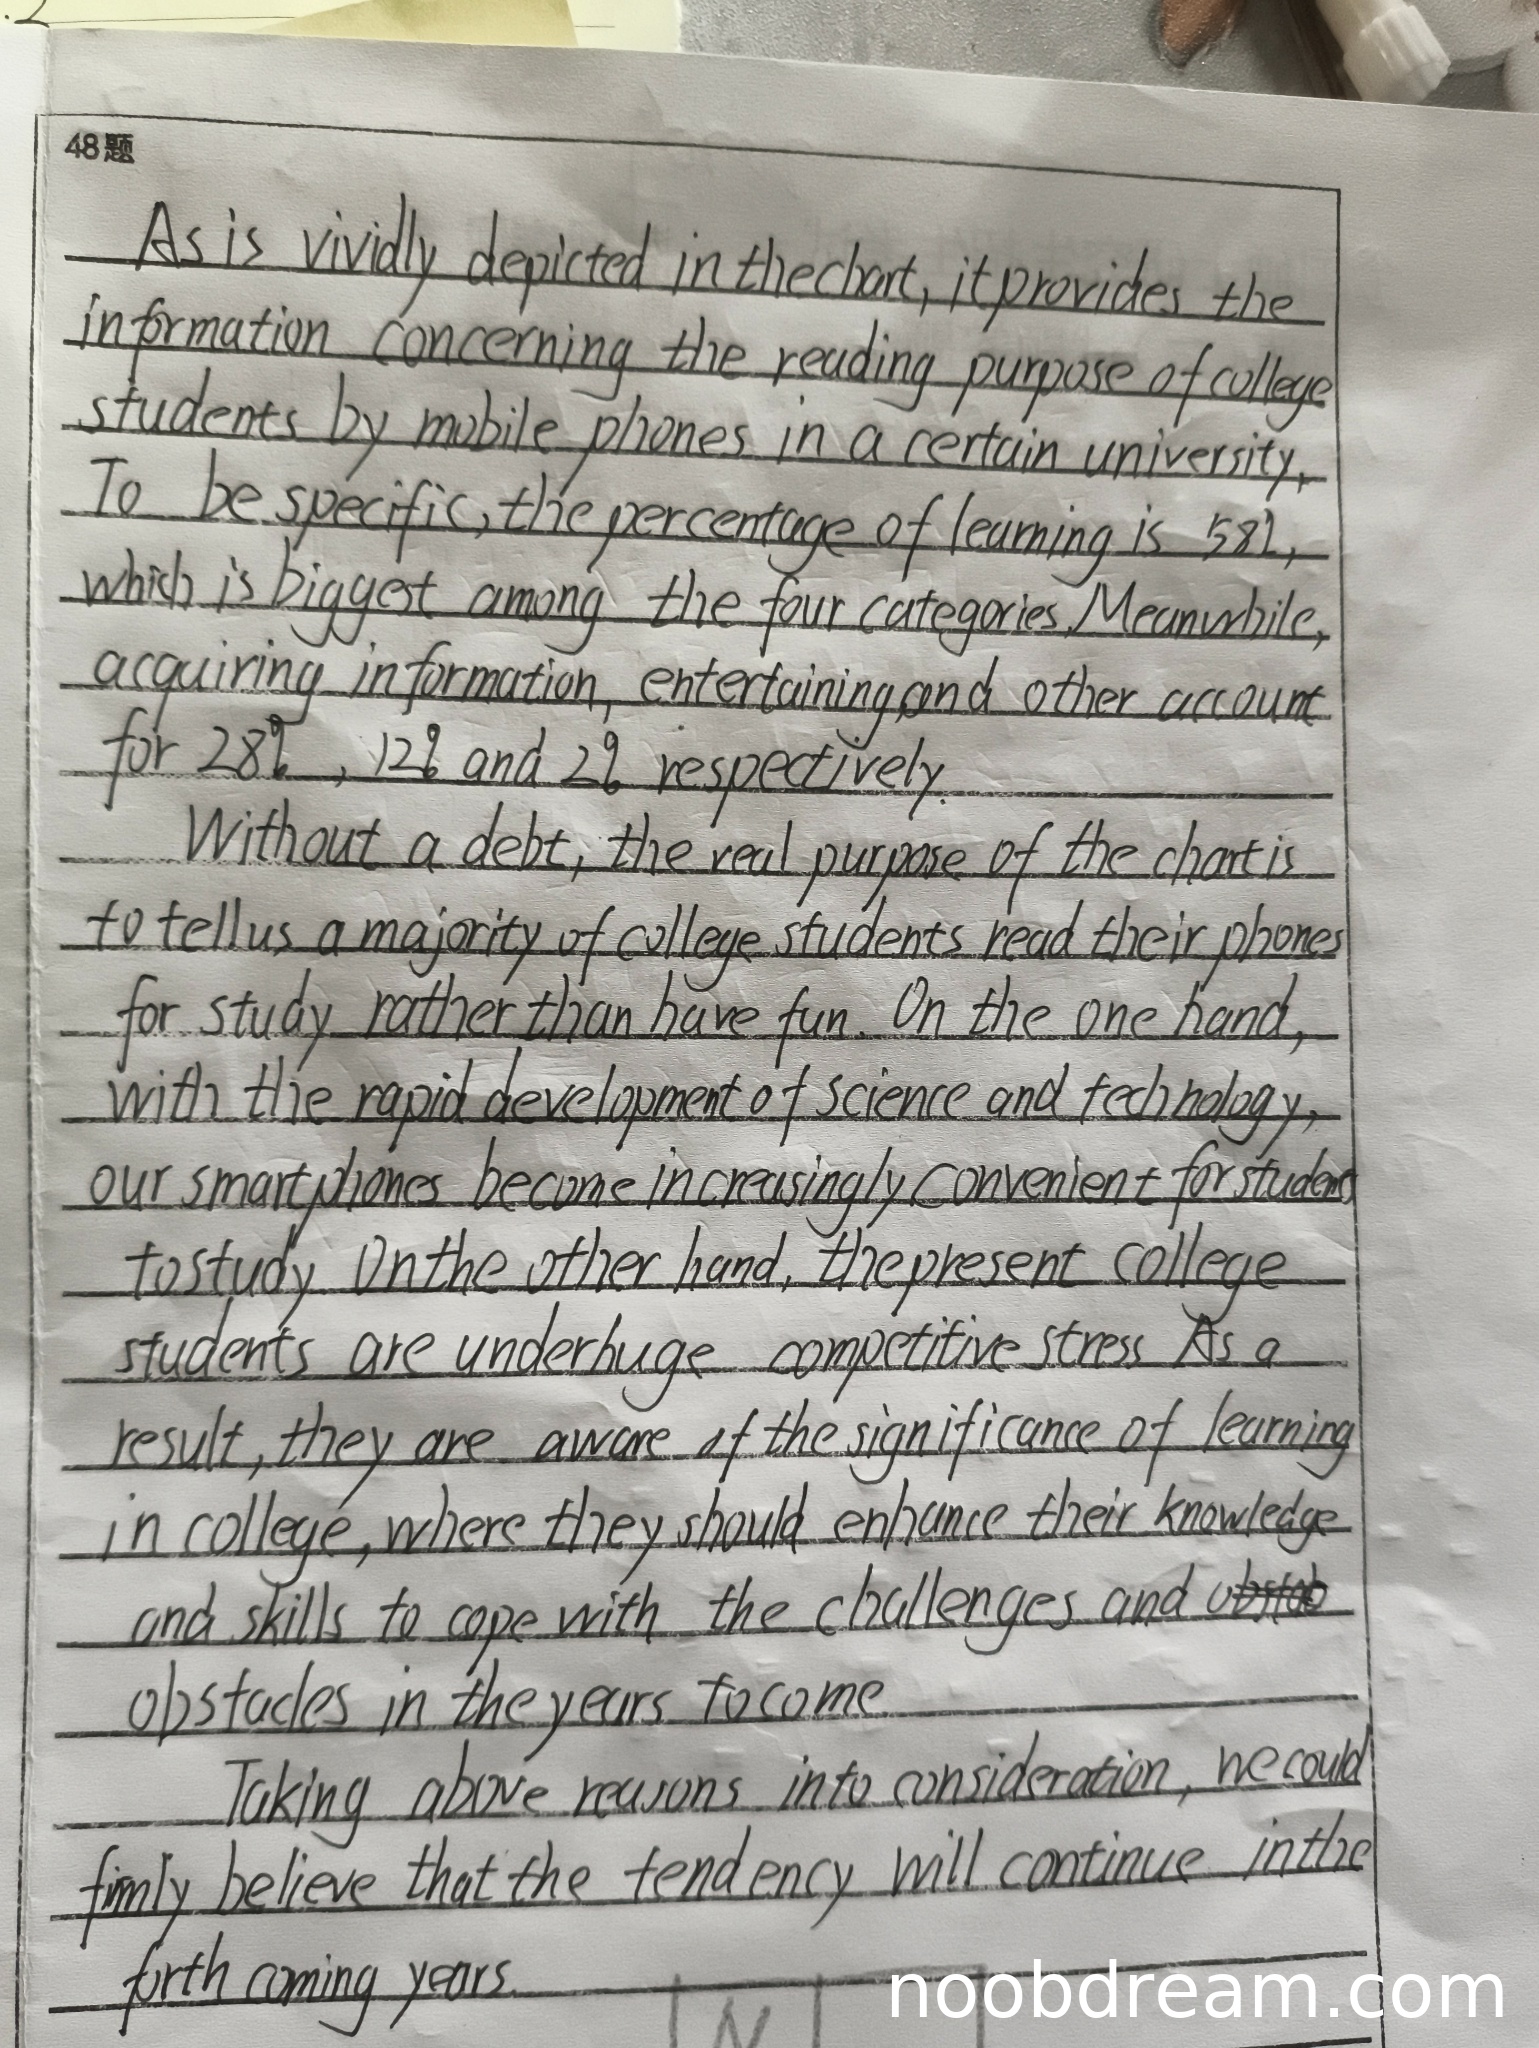 48题
As is vividly depicted in the chart, it provides the
information concerning the reading purpose of college
students by mobile phones in a certain university,
To be specific, the percentage of learning is 58%,
which is biggest among the four categories. Meanwhile,
acquiring information, entertaining, and other account
for 28%, 12% and 2% respectively.
Without a debt, the real purpose of the chart is
to tell us a majority of college students read their phones
for study rather than have fun. On the one hand,
with the rapid development of science and technology,
our smartphones become increasingly convenient for students
to study. On the other hand, the present college
students are under huge competitive stress As a
result, they are aware of the significance of learning
in college, where they should enhance their knowledge
and skills to cope with the challenges and
obstacles in the years to come.
Taking above reasons into consideration, we could
firmly believe that the tendency will continue in the
forth coming years.
noobdream.com